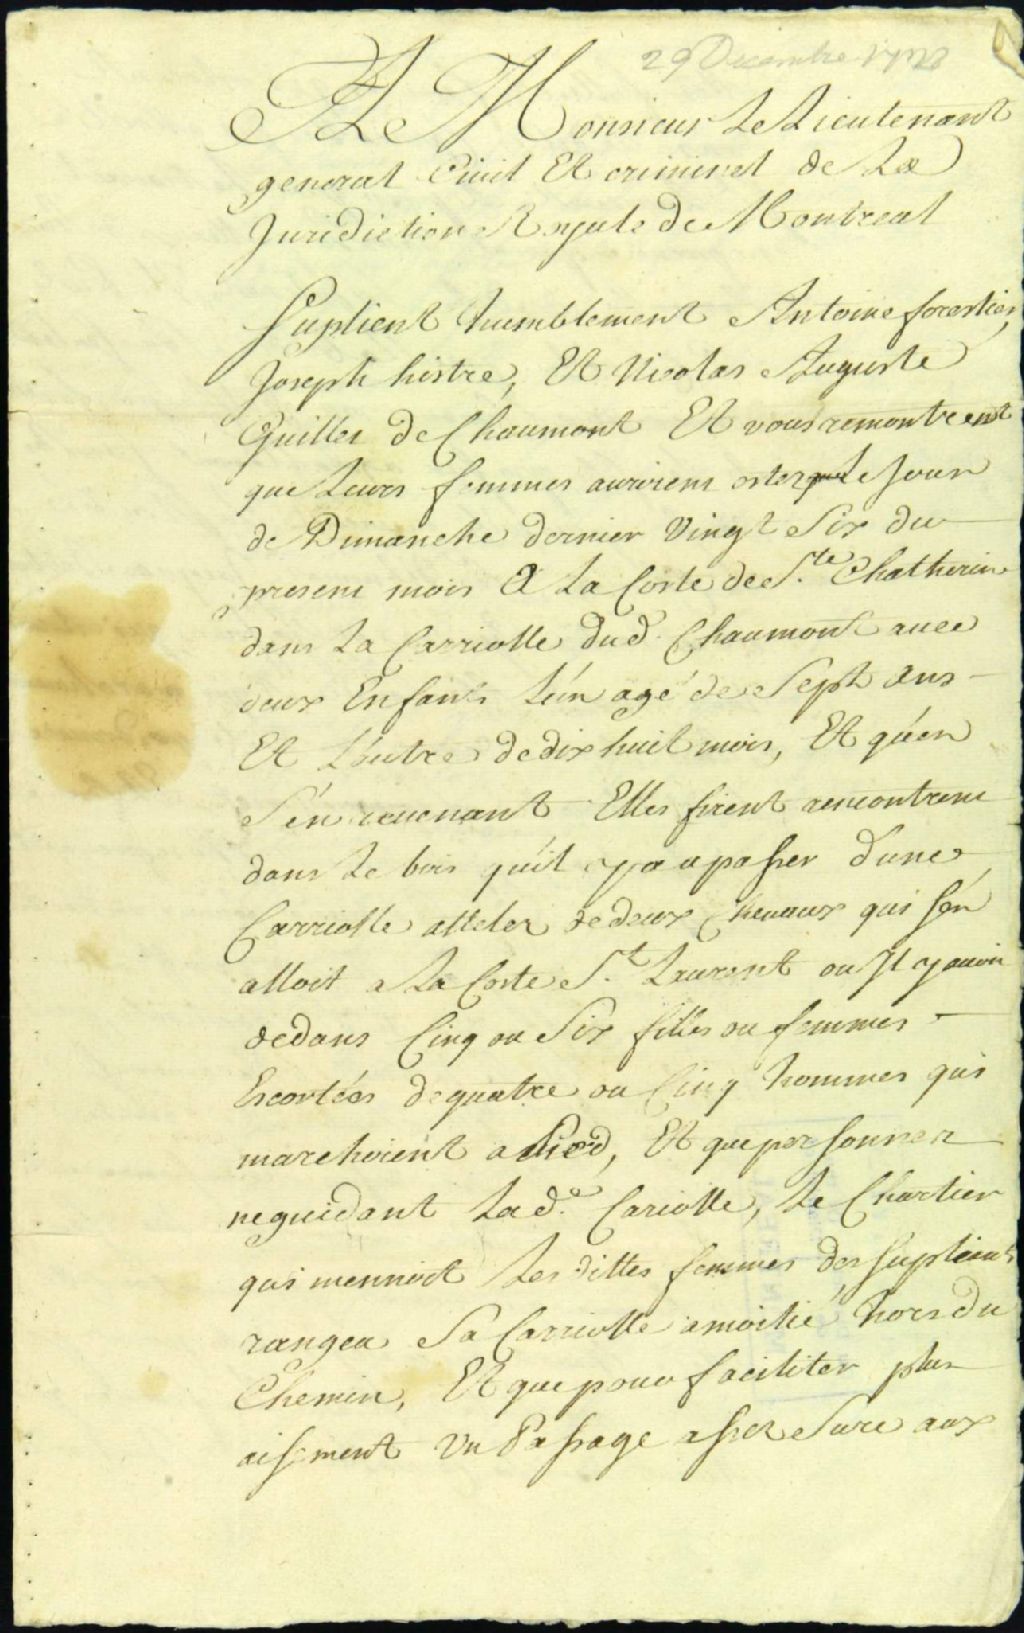 29 Decembre
A Monsieur Le Lieutenant
general Civil Et criminel de La
Juridiction Royale de Montreal
Suplient humblement Antoine forestier,
Joseph histre, Et Nicolas Auguste
Guillet de Chaumont Et vous remontrent
que Leurs femmes auroient estez Le Jour
de Dimanche dernier Vingt Six du
present mois A La Coste de Ste Chatherine
dans La Carriolle dud. Chaumont avec
deux Enfants L'un agé de Sept Ans
Et L'autre de dix huit mois, Et qu'en
S'en revenant Elles firent rencontre
dans Le bois qu'il y a a passer d'une
Carriolle atteler de deux Chevaux qui s'en
alloit a La Coste St. Laurent ou Il y avoit
dedans Cinq ou Six filles ou femmes
Escortées de quatre ou Cinq hommes qui
marchoient a Pied, Et que personnen
ne guidant Lade. Cariolle, Le Chartier
qui mennoit Les dittes femmes des Supliants
rangea Sa Carriolle a moitié hors du
Chemin, Et que pour faciliter plus
aisement Un Passage assez Sure aux